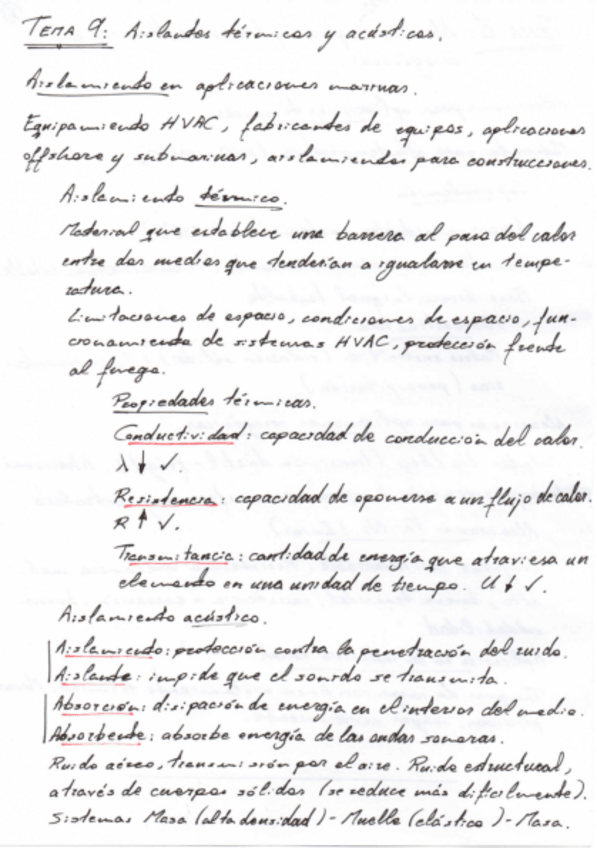 TEMA 9: Aislantes térmicos y acústicos.
Aislamiento en aplicaciones marinas.
Equipamiento HVAC, fabricantes de equipos, aplicaciones
offshore y submarinas, aislamientos para construcciones.
Aislamiento térmico.
Material que establece una barrera al paso del calor
entre dos medios que tenderían a igualarse en tempe-
ratura.
Limitaciones de espacio, condiciones de espacio, fun-
cionamiento de sistemas HVAC, protección frente
al fuego.
Propiedades térmicas.
Conductividad: capacidad de conducción del calor.
λ ↓ ✓
Resistencia: capacidad de oponerse a un flujo de calor.
R ↑ ✓.
Transmitancia: cantidad de energía que atraviesa un
elemento en una unidad de tiempo. U ↓ ✓.
Aislamiento acústico.
Aislamiento: protección contra la penetración del ruido.
Aislante: impide que el sonido se transmita.
Absorción: disipación de energía en el interior del medio.
Absorbente: absorbe energía de las ondas sonoras.
Ruido aéreo, transmisión por el aire. Ruido estructural,
através de cuerpos sólidos (se reduce más difícilmente).
Sistemas Masa (alta densidad) - Muelle (elástico) - Masa.